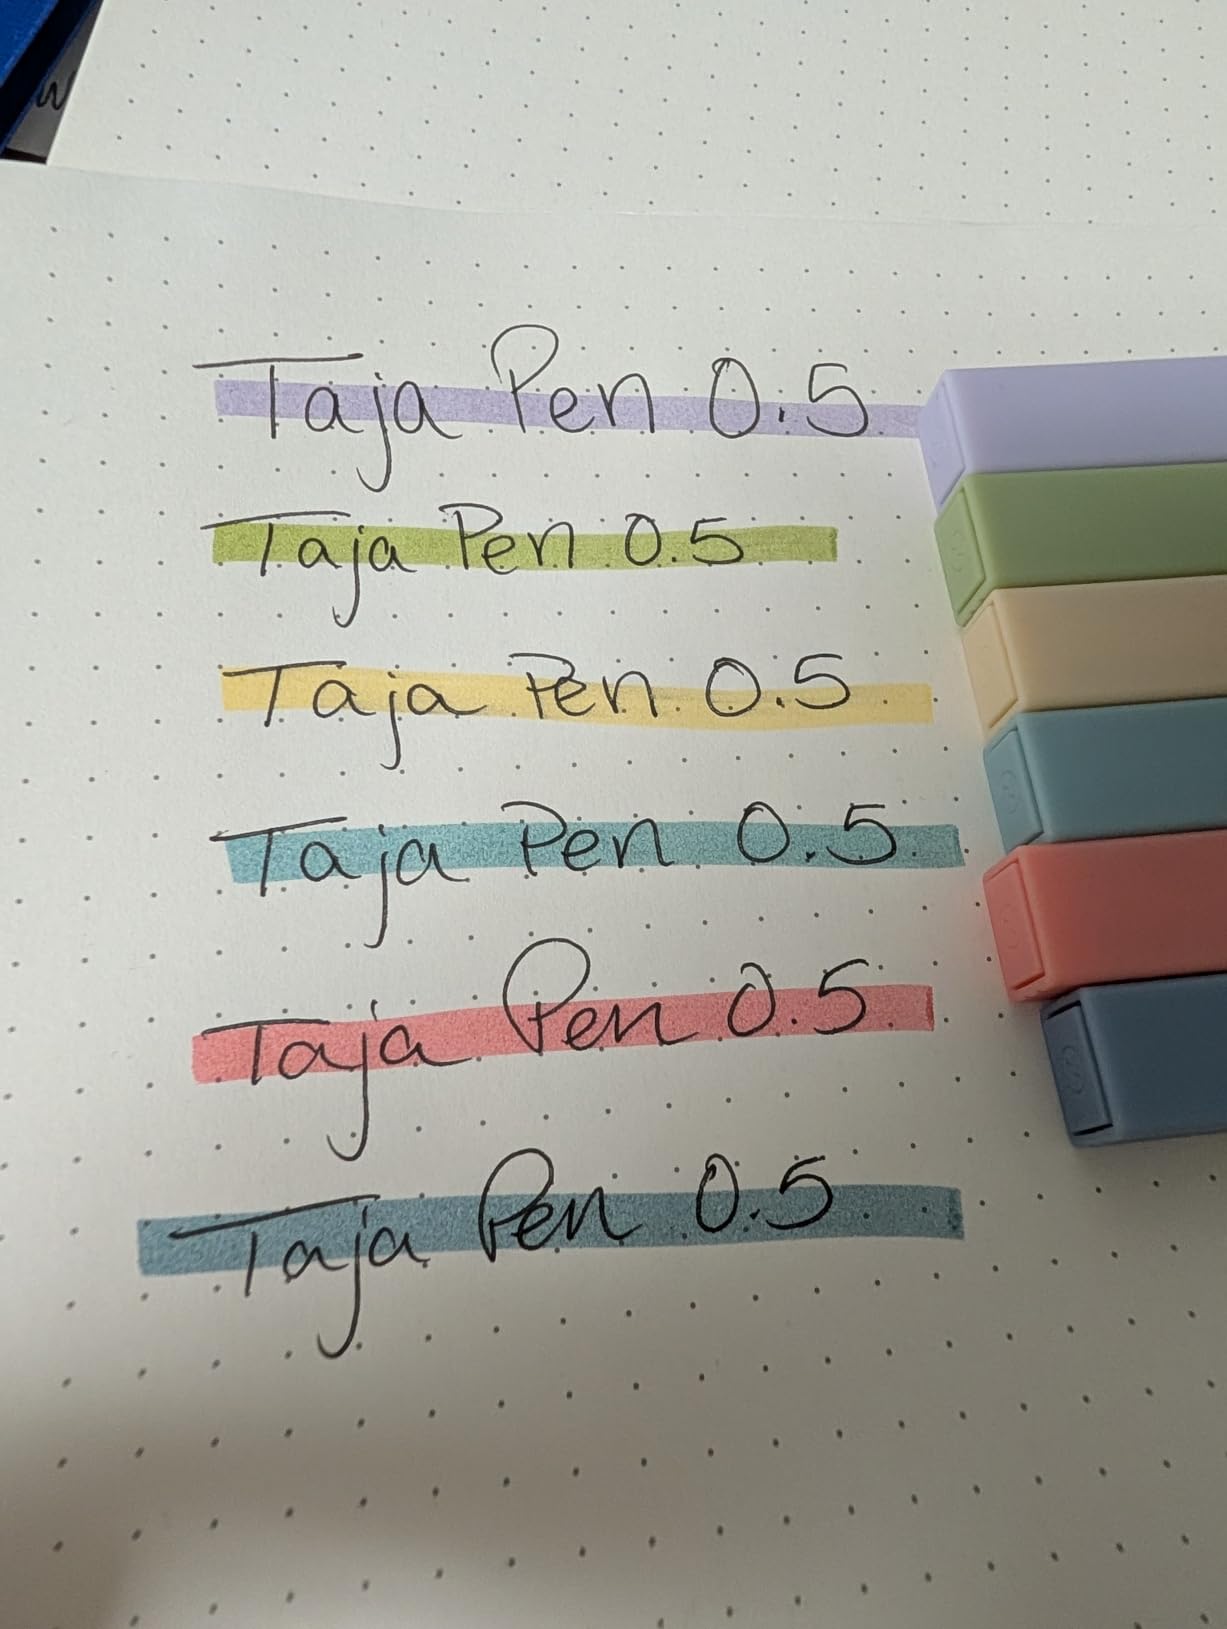 Taja Pen 0.5
Taja Pen 0.5
Taja Pen 0.5
Taja Pen 0.5
Taja Pen 0.5
Taja Pen 0.5